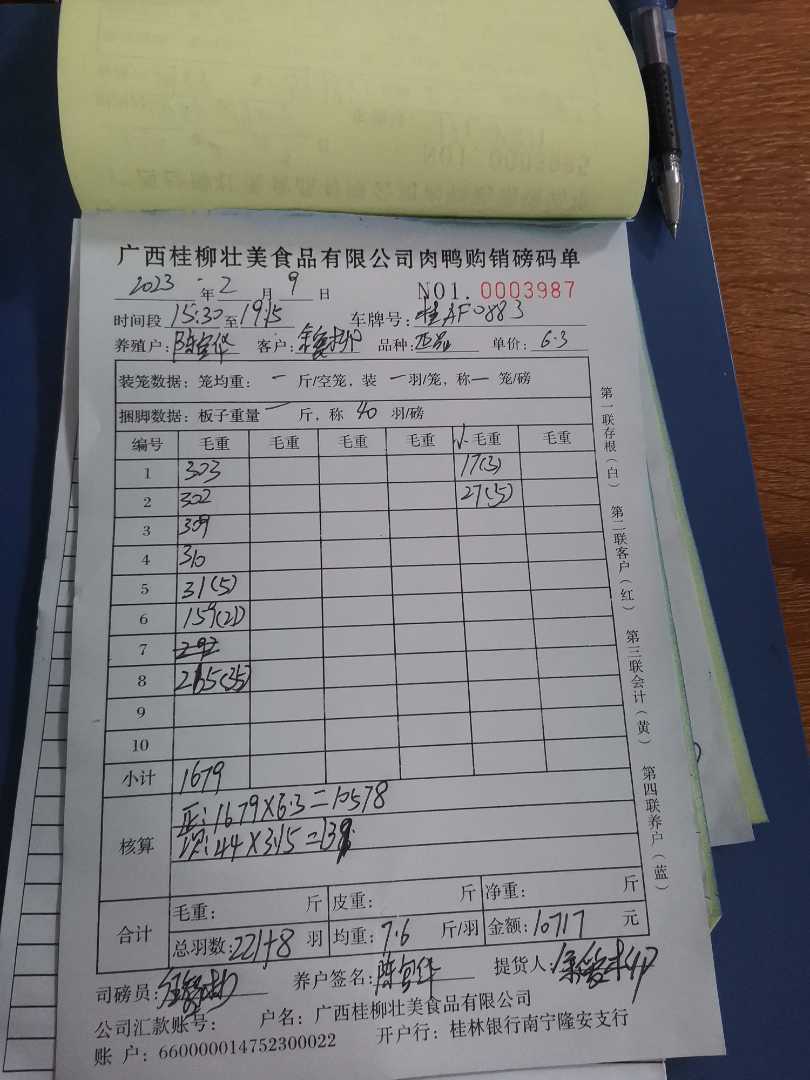 广西桂柳壮美食品有限公司肉鸭购销磅码单
2023 年 2 月 9 日 NO1. 0003987
时间段 15:30 至 19:15 车牌号: 桂AF0883
养殖户: 陈宫华 客户: 品种: 单价: 6.3
装笼数据: 笼均重: 一 斤/空笼, 装 一 羽/笼, 称 一 笼/磅
捆脚数据: 板子重量 一 斤, 称 40 羽/磅
编号 毛重 毛重 毛重 毛重 毛重 毛重
1 303 17(3)
2 302 27(5)
3 309
4 310
5 31(5)
6 159(21)
7 292
8 265(35)
9
10
小计 1679
核算
正: 1679×6.3=10578
次: 44×3.15=139
合计
毛重: 斤 皮重: 斤 净重: 斤
总羽数: 221+8 羽 均重: 7.6 斤/羽 金额: 10717 元
司磅员: 养户签名: 陈宫华 提货人:
公司汇款账号: 户名: 广西桂柳壮美食品有限公司
账 户: 660000014752300022 开户行: 桂林银行南宁隆安支行
第一联存根(白) 第二联客户(红) 第三联会计(黄) 第四联养户(蓝)